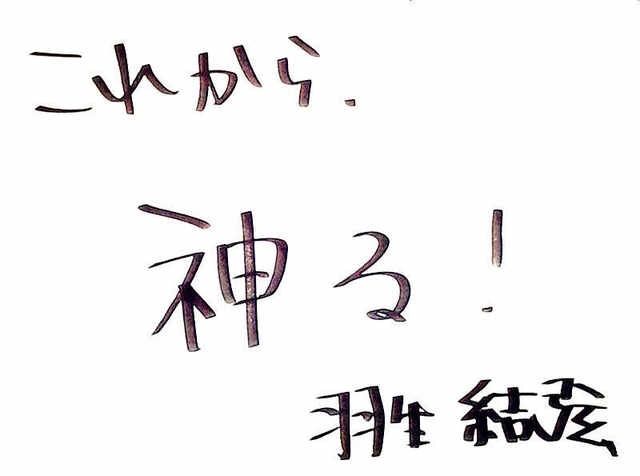 これから.
神る!
羽生 結弦